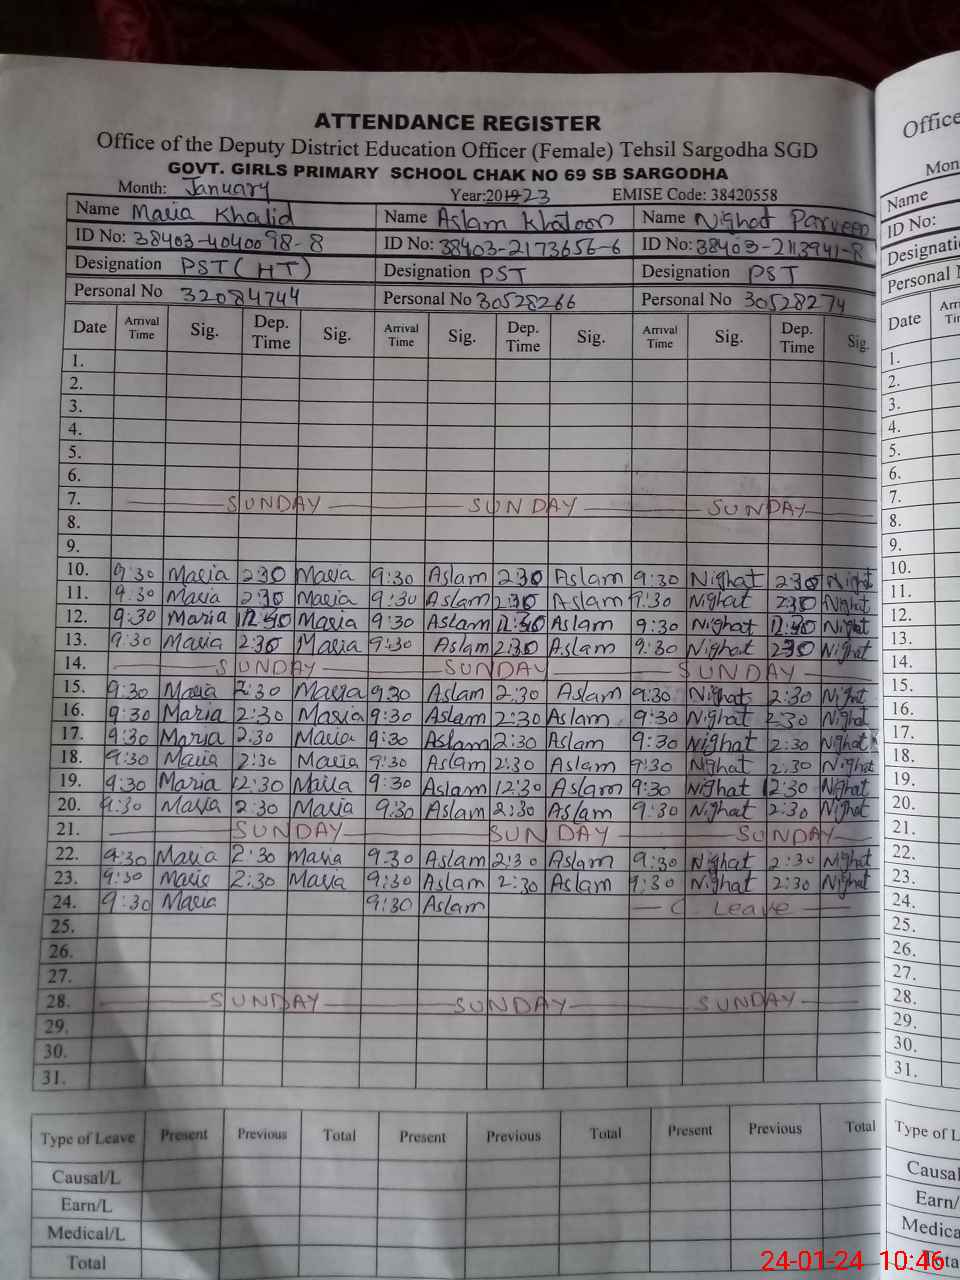 ATTENDANCE REGISTER
Office of the Deputy District Education Officer (Female) Tehsil Sargodha SGD
GOVT. GIRLS PRIMARY SCHOOL CHAK NO 69 SB SARGODHA
Month: January Year:2019 23 EMISE Code: 38420558
Name Maria Khalid Name Aslam Khatoon Name Nighat Parveen
ID No: 38403-4040098-8 ID No: 38403-2173656-6 ID No: 38403-2113941-8
Designation PST (HT) Designation PST Designation PST
Personal No 32084744 Personal No 30528266 Personal No 30528274
Date Arrival Time Sig. Dep. Time Sig. Arrival Time Sig. Dep. Time Sig. Arrival Time Sig. Dep. Time Sig.
1.
2.
3.
4.
5.
6.
7. SUNDAY SUNDAY SUNDAY
8.
9.
10. 9:30 Maria 2:30 Maria 9:30 Aslam 2:30 Aslam 9:30 Nighat 2:30 Nighat
11. 9:30 Maria 2:30 Maria 9:30 Aslam 2:30 Aslam 9:30 Nighat 2:30 Nighat
12. 9:30 Maria 12:30 Maria 9:30 Aslam 12:30 Aslam 9:30 Nighat 12:30 Nighat
13. 9:30 Maria 2:30 Maria 9:30 Aslam 2:30 Aslam 9:30 Nighat 2:30 Nighat
14. SUNDAY SUNDAY SUNDAY
15. 9:30 Maria 2:30 Maria 9:30 Aslam 2:30 Aslam 9:30 Nighat 2:30 Nighat
16. 9:30 Maria 2:30 Maria 9:30 Aslam 2:30 Aslam 9:30 Nighat 2:30 Nighat
17. 9:30 Maria 2:30 Maria 9:30 Aslam 2:30 Aslam 9:30 Nighat 2:30 Nighat
18. 9:30 Maria 2:30 Maria 9:30 Aslam 2:30 Aslam 9:30 Nighat 2:30 Nighat
19. 9:30 Maria 12:30 Maria 9:30 Aslam 12:30 Aslam 9:30 Nighat 12:30 Nighat
20. 9:30 Maria 2:30 Maria 9:30 Aslam 2:30 Aslam 9:30 Nighat 2:30 Nighat
21. SUNDAY SUNDAY SUNDAY
22. 9:30 Maria 2:30 Maria 9:30 Aslam 2:30 Aslam 9:30 Nighat 2:30 Nighat
23. 9:30 Maria 2:30 Maria 9:30 Aslam 2:30 Aslam 9:30 Nighat 2:30 Nighat
24. 9:30 Maria 9:30 Aslam C Leave
25.
26.
27.
28. SUNDAY SUNDAY SUNDAY
29.
30.
31.
Type of Leave Present Previous Total Present Previous Total Present Previous Total
Causal/L
Earn/L
Medical/L
Total
Office
Mon
Name
ID No:
Designati
Personal N
Date
1.
2.
3.
4.
5.
6.
7.
8.
9.
10.
11.
12.
13.
14.
15.
16.
17.
18.
19.
20.
21.
22.
23.
24.
25.
26.
27.
28.
29.
30.
31.
Type of L
Causal
Earn/
Medica
24-01-24 10:46